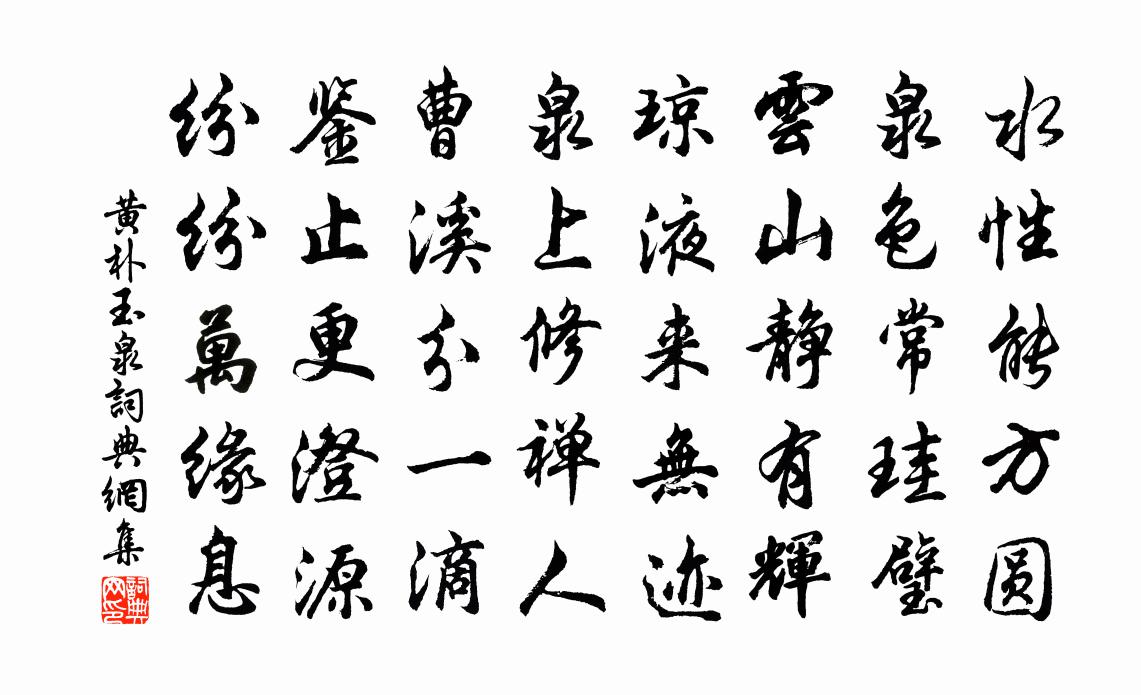 水性能方圆
泉色常珪璧
雲山静有輝
琼液来無迹
泉上修禅人
曹溪分一滴
鉴止更澄源
纷纷萬缘息
黄朴玉泉詞典網集
詞典網印